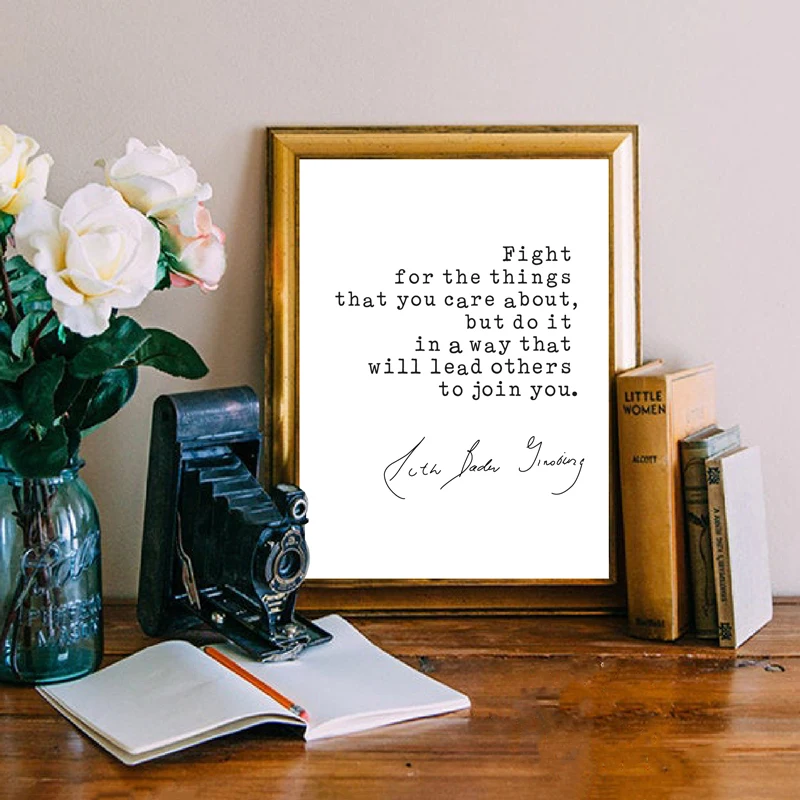 Fight
for the things
that you care about,
but do it
in a way that
will lead others
to join you.
Ruth Bader Ginsburg
LITTLE
WOMEN
ALCOTT
Ball
PERFECT
MASON